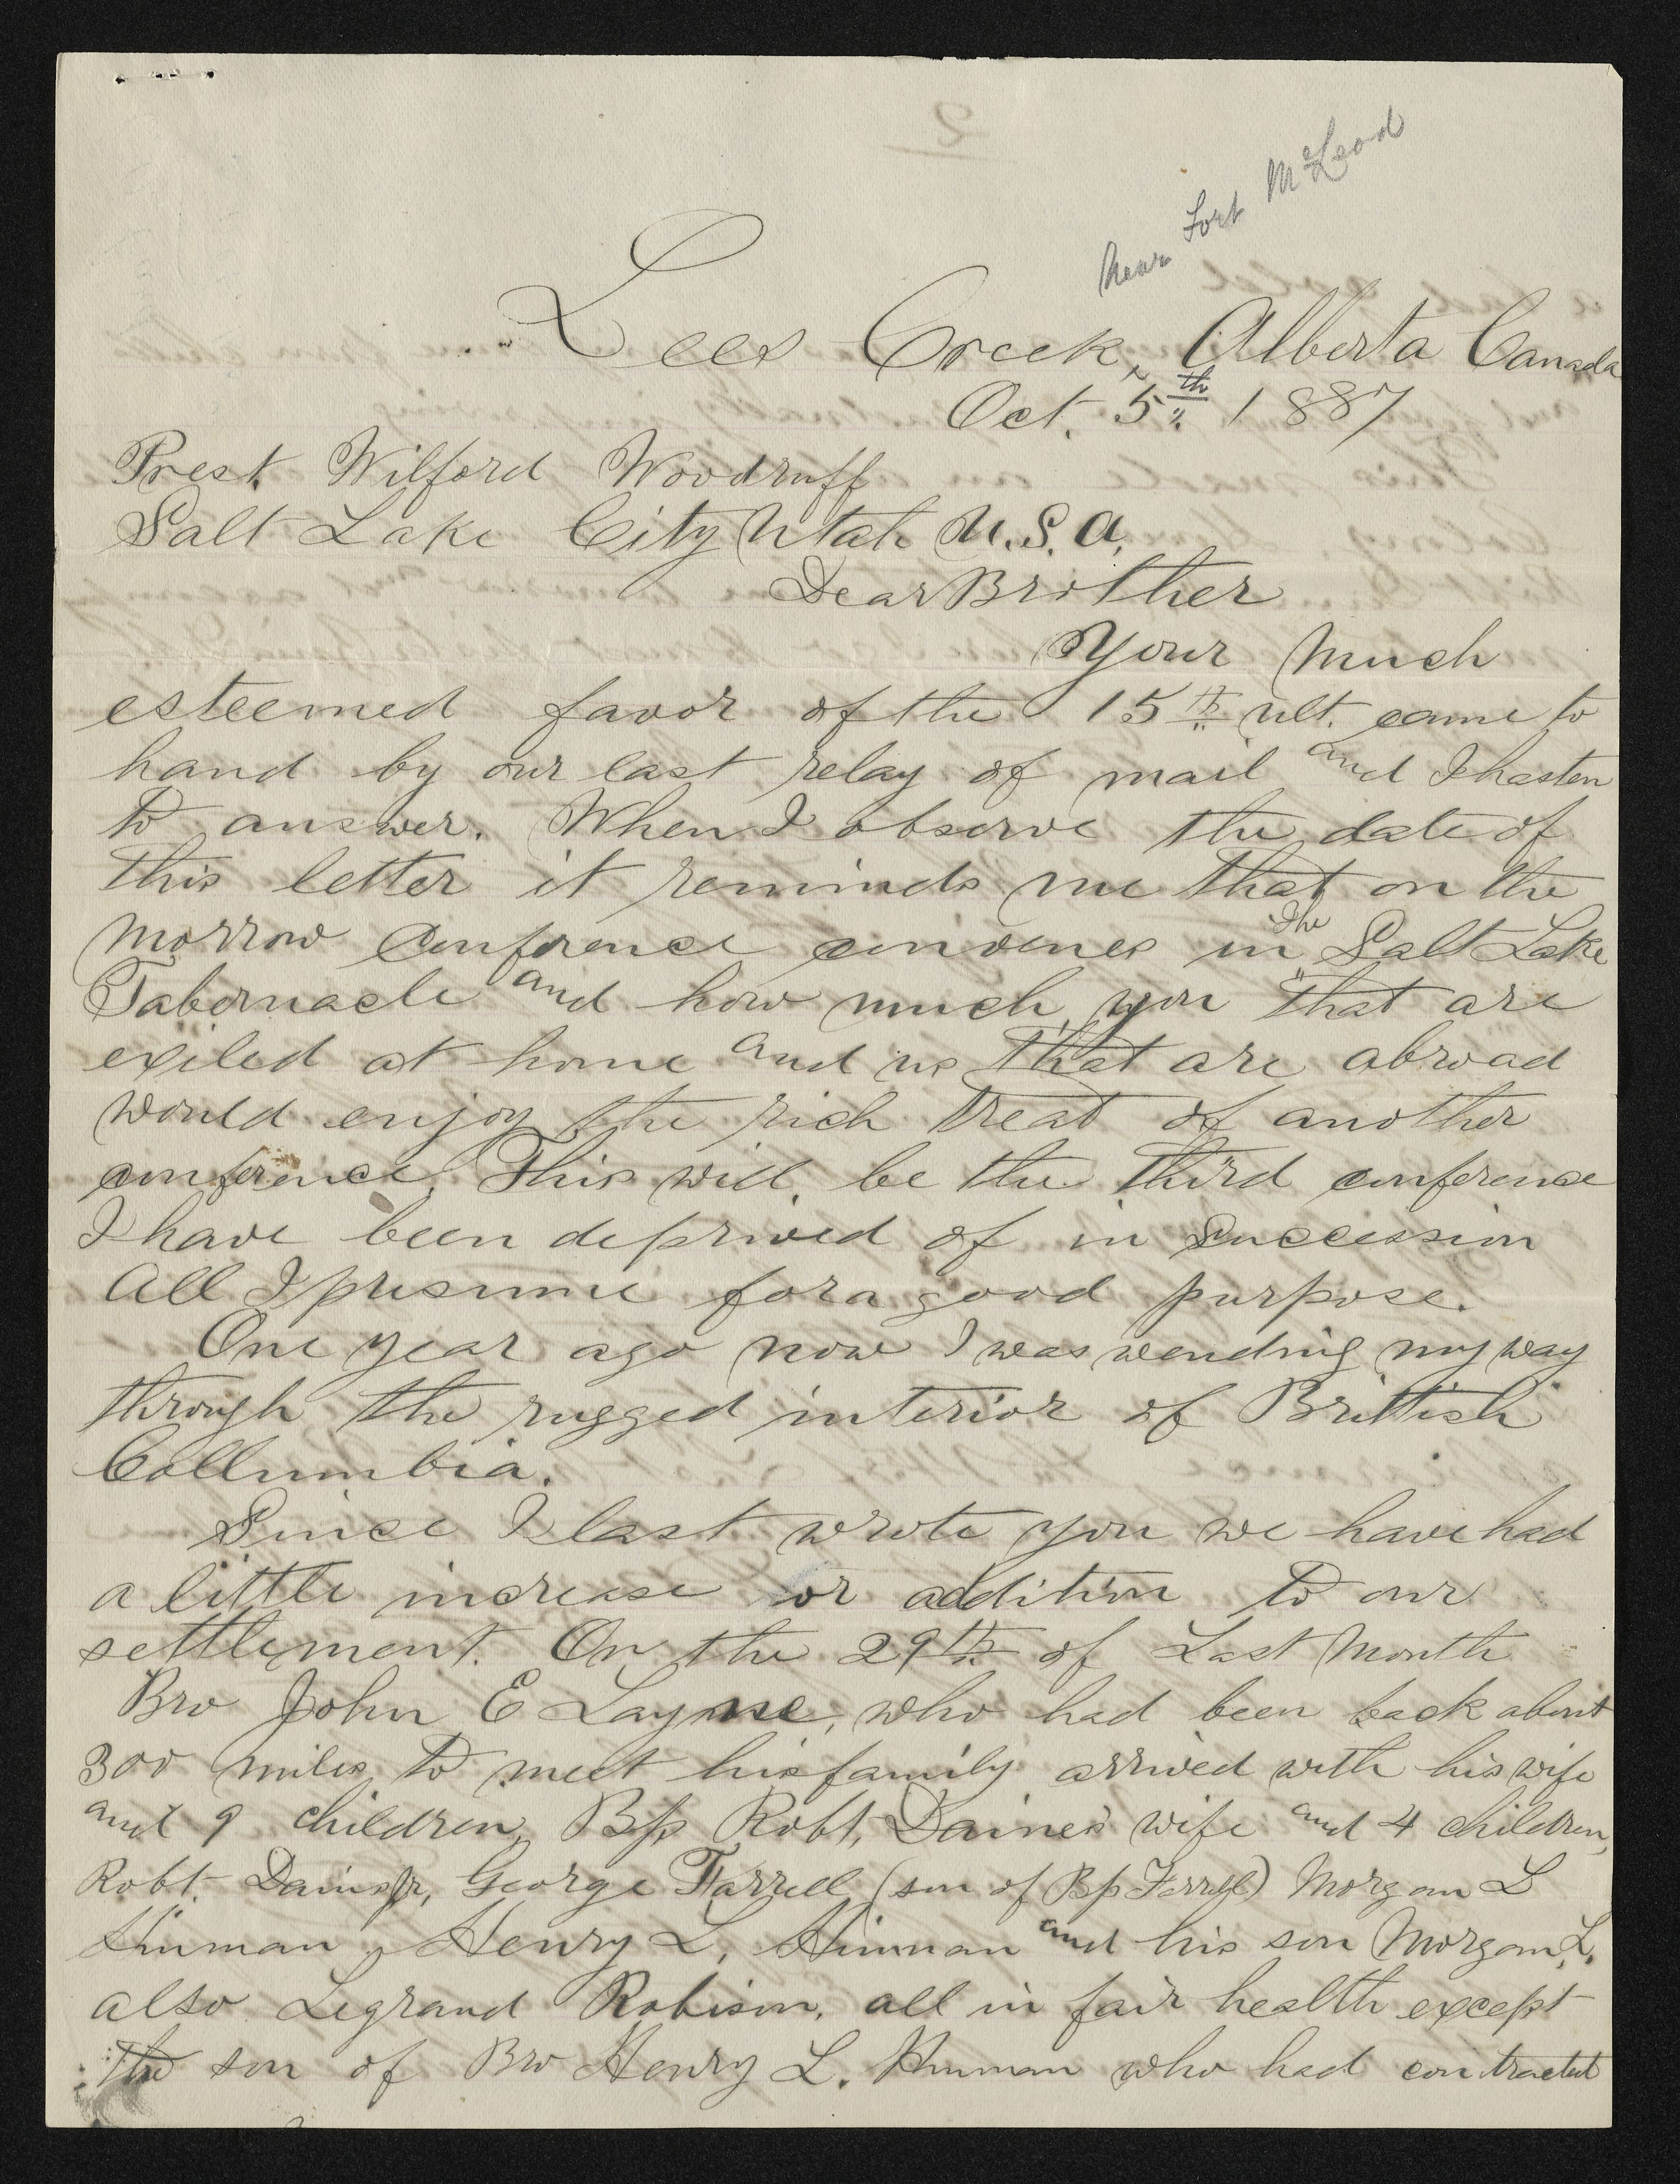 near Fort McLeod
Lees Creek, Alberta Canada
Oct. 5th 1887
Prest. Wilford Woodruff
Salt Lake City Utah U.S.A.
Dear Brother
Your much
esteemed favor of the 15th ult. came to
hand by our last relay of mail and I hasten
to answer. When I observe the date of
this letter it reminds me that on the
morrow Conference convenes in the Salt Lake
Tabernacle and how much you that are
exiled at home and us that are abroad
would enjoy the rich treat of another
conference. This will be the third conference
I have been deprived of in succession
All I presume for a good purpose.
One year ago now I was wending my way
through the rugged interior of Brittish
Collumbia.
Since I last wrote you we have had
a little increase or addition to our
settlement. On the 29th of Last Month
Bro John E Layne, who had been back about
300 miles to meet his family arrived with his wife
and 9 children, Bp Robt. Daines wife and 4 children,
Robt. Daines Jr, George Farrell (son of Bp Farrell) Morgan L
Hinman, Henry L. Hinman and his son Morgan L.
also Legrand Robison. all in fair health except
the son of Bro Henry L. Hinman who had contracted